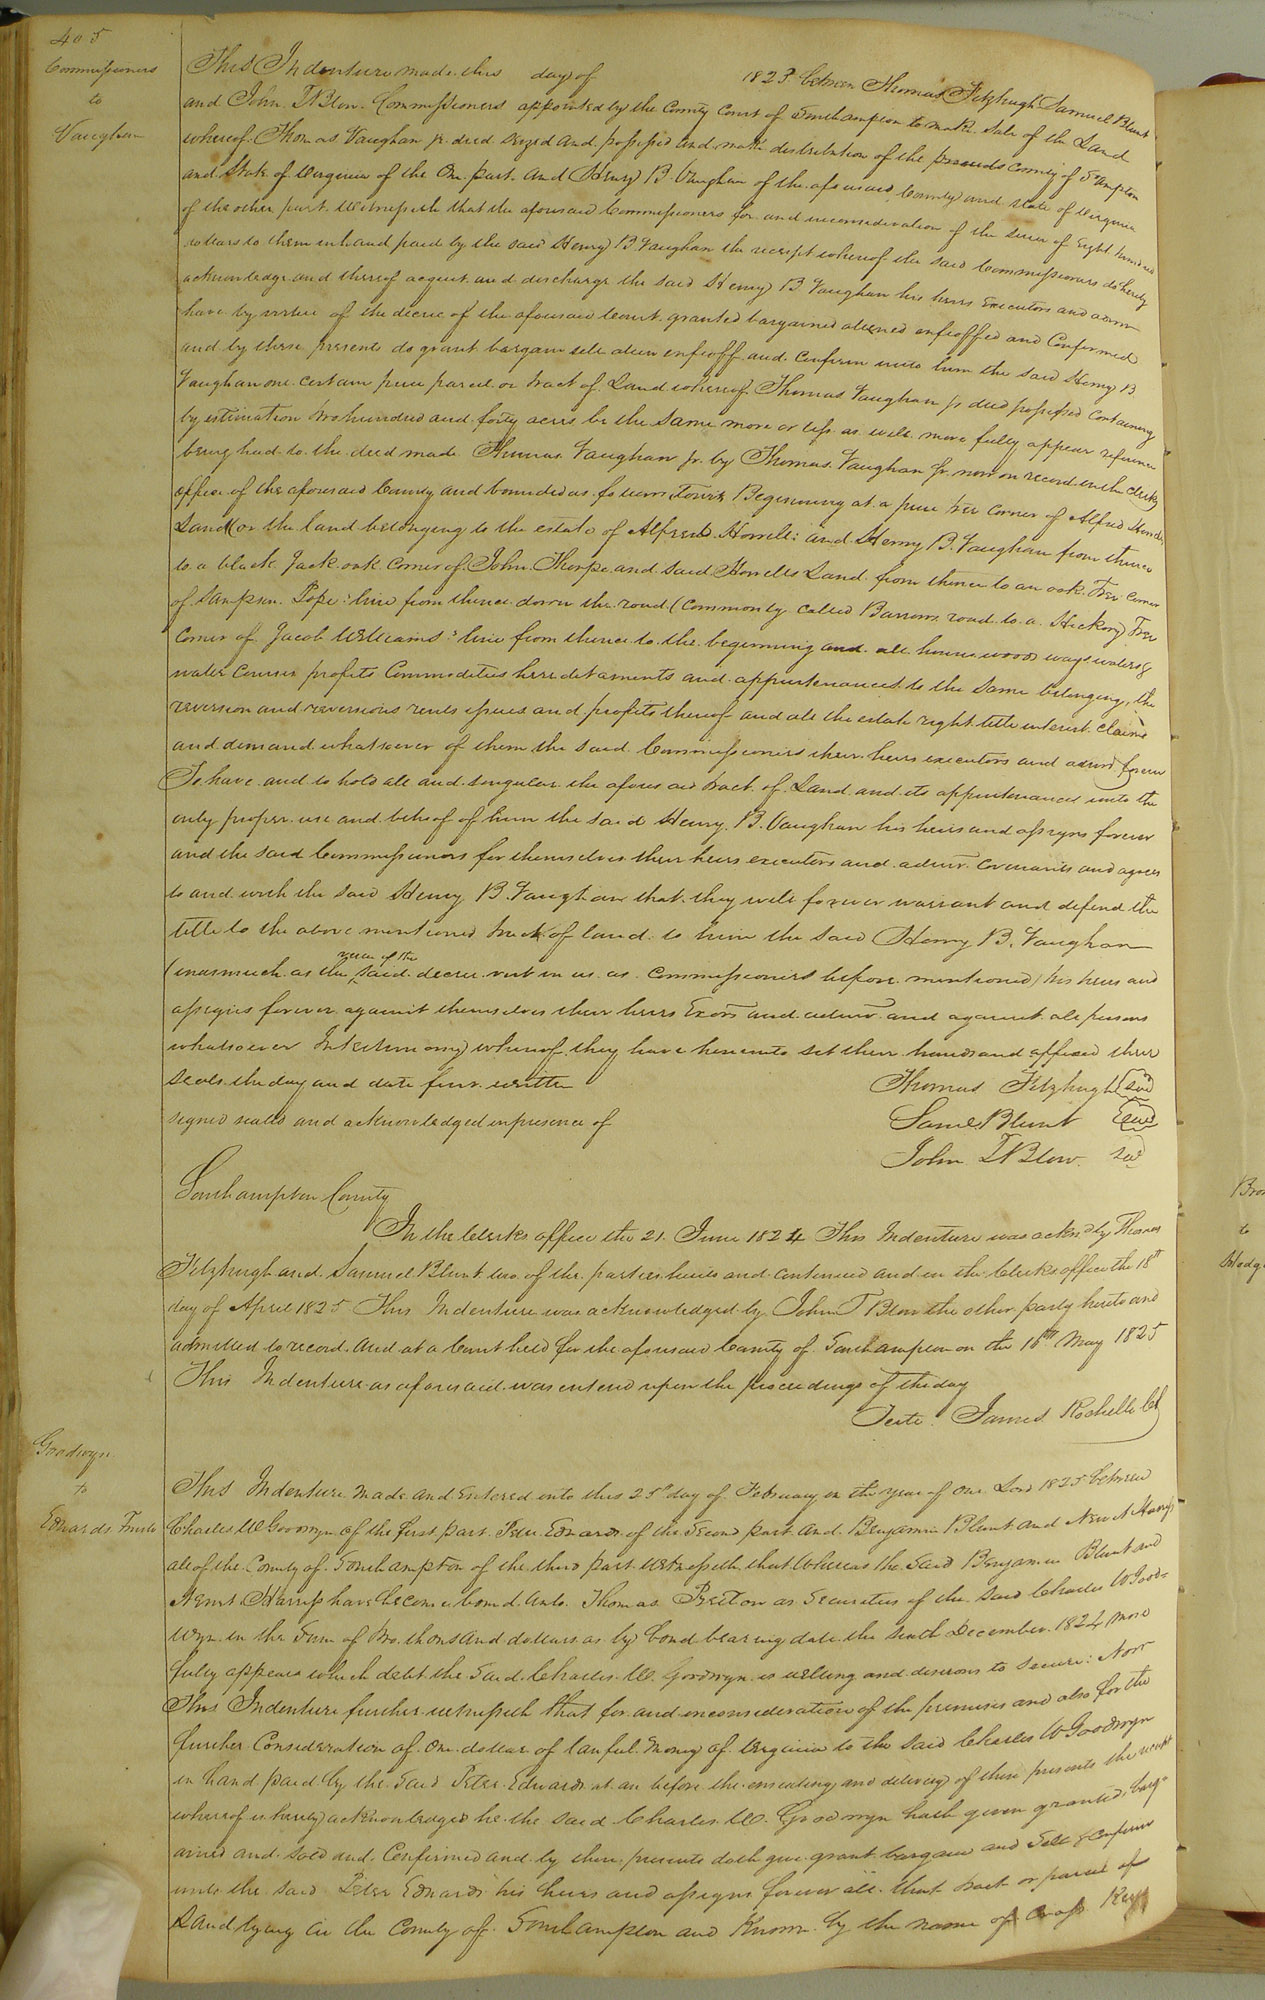 405
Commissioners
to
Vaughan
This Indenture made this day of 1823 between Thomas Fitzhugh Samuel Blunt
and John T Blow Commissioners appointed by the County Court of Southampton to make sale of the Land
whereof Thomas Vaughan jr decd seized and possessed and make distribution of the proceeds County of Sthampton
and State of Virginia of the One part and Henry B Vaughan of the aforesaid County and State of Virginia
of the other part Witnesseth that the aforesaid Commissioners for and in consideration of the sum of Eight hundred
dollars to them in hand paid by the said Henry B Vaughan the receipt whereof the said Commissioners do hereby
acknowledge and thereof acquit and discharge the said Henry B Vaughan his heirs Executors and admr
have by virtue of the decree of the aforesaid Court granted bargained aliened enfeoffed and Confirmed
and by these presents do grant bargain sell alien enfeoff and Confirm unto him the said Henry B
Vaughan one certain piece parcel or tract of Land whereof Thomas Vaughan jr decd possessed Containing
by estimation two hundred and forty acres be the same more or less as will more fully appear reference
being had to the deed made Thomas Vaughan jr by Thomas Vaughan Sr now on record in the clerks
office of the aforesaid County and bounded as follows Towit Beginning at a pine tree corner of Alfred
Land (or the land belonging to the estate of Alfred Howell: and Henry B. Vaughan from thence
to a black Jack oak corner of John Thorpe and said Howells Land from thence to an oak Tree corner
of Sampson Pope: line from thence down the road (Commonly called Barrows road to a Hickory Tree
Corner of Jacob Williams: line from thence to the beginning and all houses woods ways waters &
water Courses profits Commodities hereditaments and appurtenances to the same belonging, the
reversion and reversions rents issues and profits thereof and all the estate right title interest claim
and demand whatsoever of them the said Commissioners their heirs executors and admr forever
To have and to hold all and singular the aforesaid tract of Land and its appurtenances unto the
only proper use and behoof of him the said Henry B. Vaughan his heirs and assigns forever
and the said Commissioners for themselves their heirs executors and admr covenants and agrees
to and with the said Henry B. Vaughan that they will forever warrant and defend the
title to the above mentioned tract of land to him the said Henry B. Vaughan
(inasmuch as the said decree vest in us as commissioners before mentioned) his heirs and
assigns forever against themselves their heirs Exors and admr and against all persons
whatsoever In testimony whereof they have hereunto set their hands and affixed their
seals the day and date first written Thomas Fitzhugh Seal
signed sealed and acknowledged in presence of Saml Blunt Seal
John T Blow. Seal
Southampton County
In the Clerks office the 21 June 1824 This Indenture was acknd by Thomas
Fitzhugh and Samuel Blunt two of the parties hereto and continued and in the Clerks office the 18th
day of April 1825 This Indenture was acknowledged by John T Blow the other party hereto and
admitted to record. And at a Court held for the aforesaid County of Southampton on the 16th May 1825
This Indenture as aforesaid was entered upon the proceedings of the day
Teste. James Rochelle Cl
Goodwyn
to
Edwards Trustee
This Indenture made and entered into this 25th day of February in the year of our Lord 1825 between
Charles W Goodwyn of the first part Peter Edwards of the Second part and Benjamin Blunt and
all of the County of Southampton of the third part Witnesseth that Whereas the Said Benjamin Blunt and
Newit Harriss have become bound unto Thomas Pretlow as Securities of the said Charles W Good-
wyn in the Sum of two thousand dollars as by bond bearing date the sixth December 1824 more
fully appears which debt the Said Charles W. Goodwyn is willing and desirous to secure: Now
This Indenture further witnesseth that for and in consideration of the premises and also for the
further Consideration of One dollar of lawful money of Virginia to the said Charles W Goodwyn
in hand paid by the Said Peter Edwards at an before the ensealing and delivery of these presents the receipt
whereof is hereby acknowledged he the said Charles W. Goodwyn hath given granted barg-
ained and sold and Confirmed and by these presents doth give grant bargain and Sell & Confirm
unto the said Peter Edwards his heirs and assigns forever all that tract or parcel of
Land lying in the County of Southampton and Known by the name of Cross Keys
to